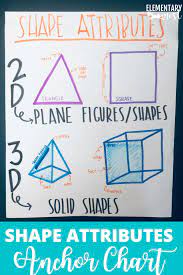 ELEMENTARY
nest
SHAPE ATTRIBUTES
2D
TRIANGLE
SQUARE
PLANE FIGURES/SHAPES
3D
SOLID SHAPES
SHAPE ATTRIBUTES
Anchor Chart